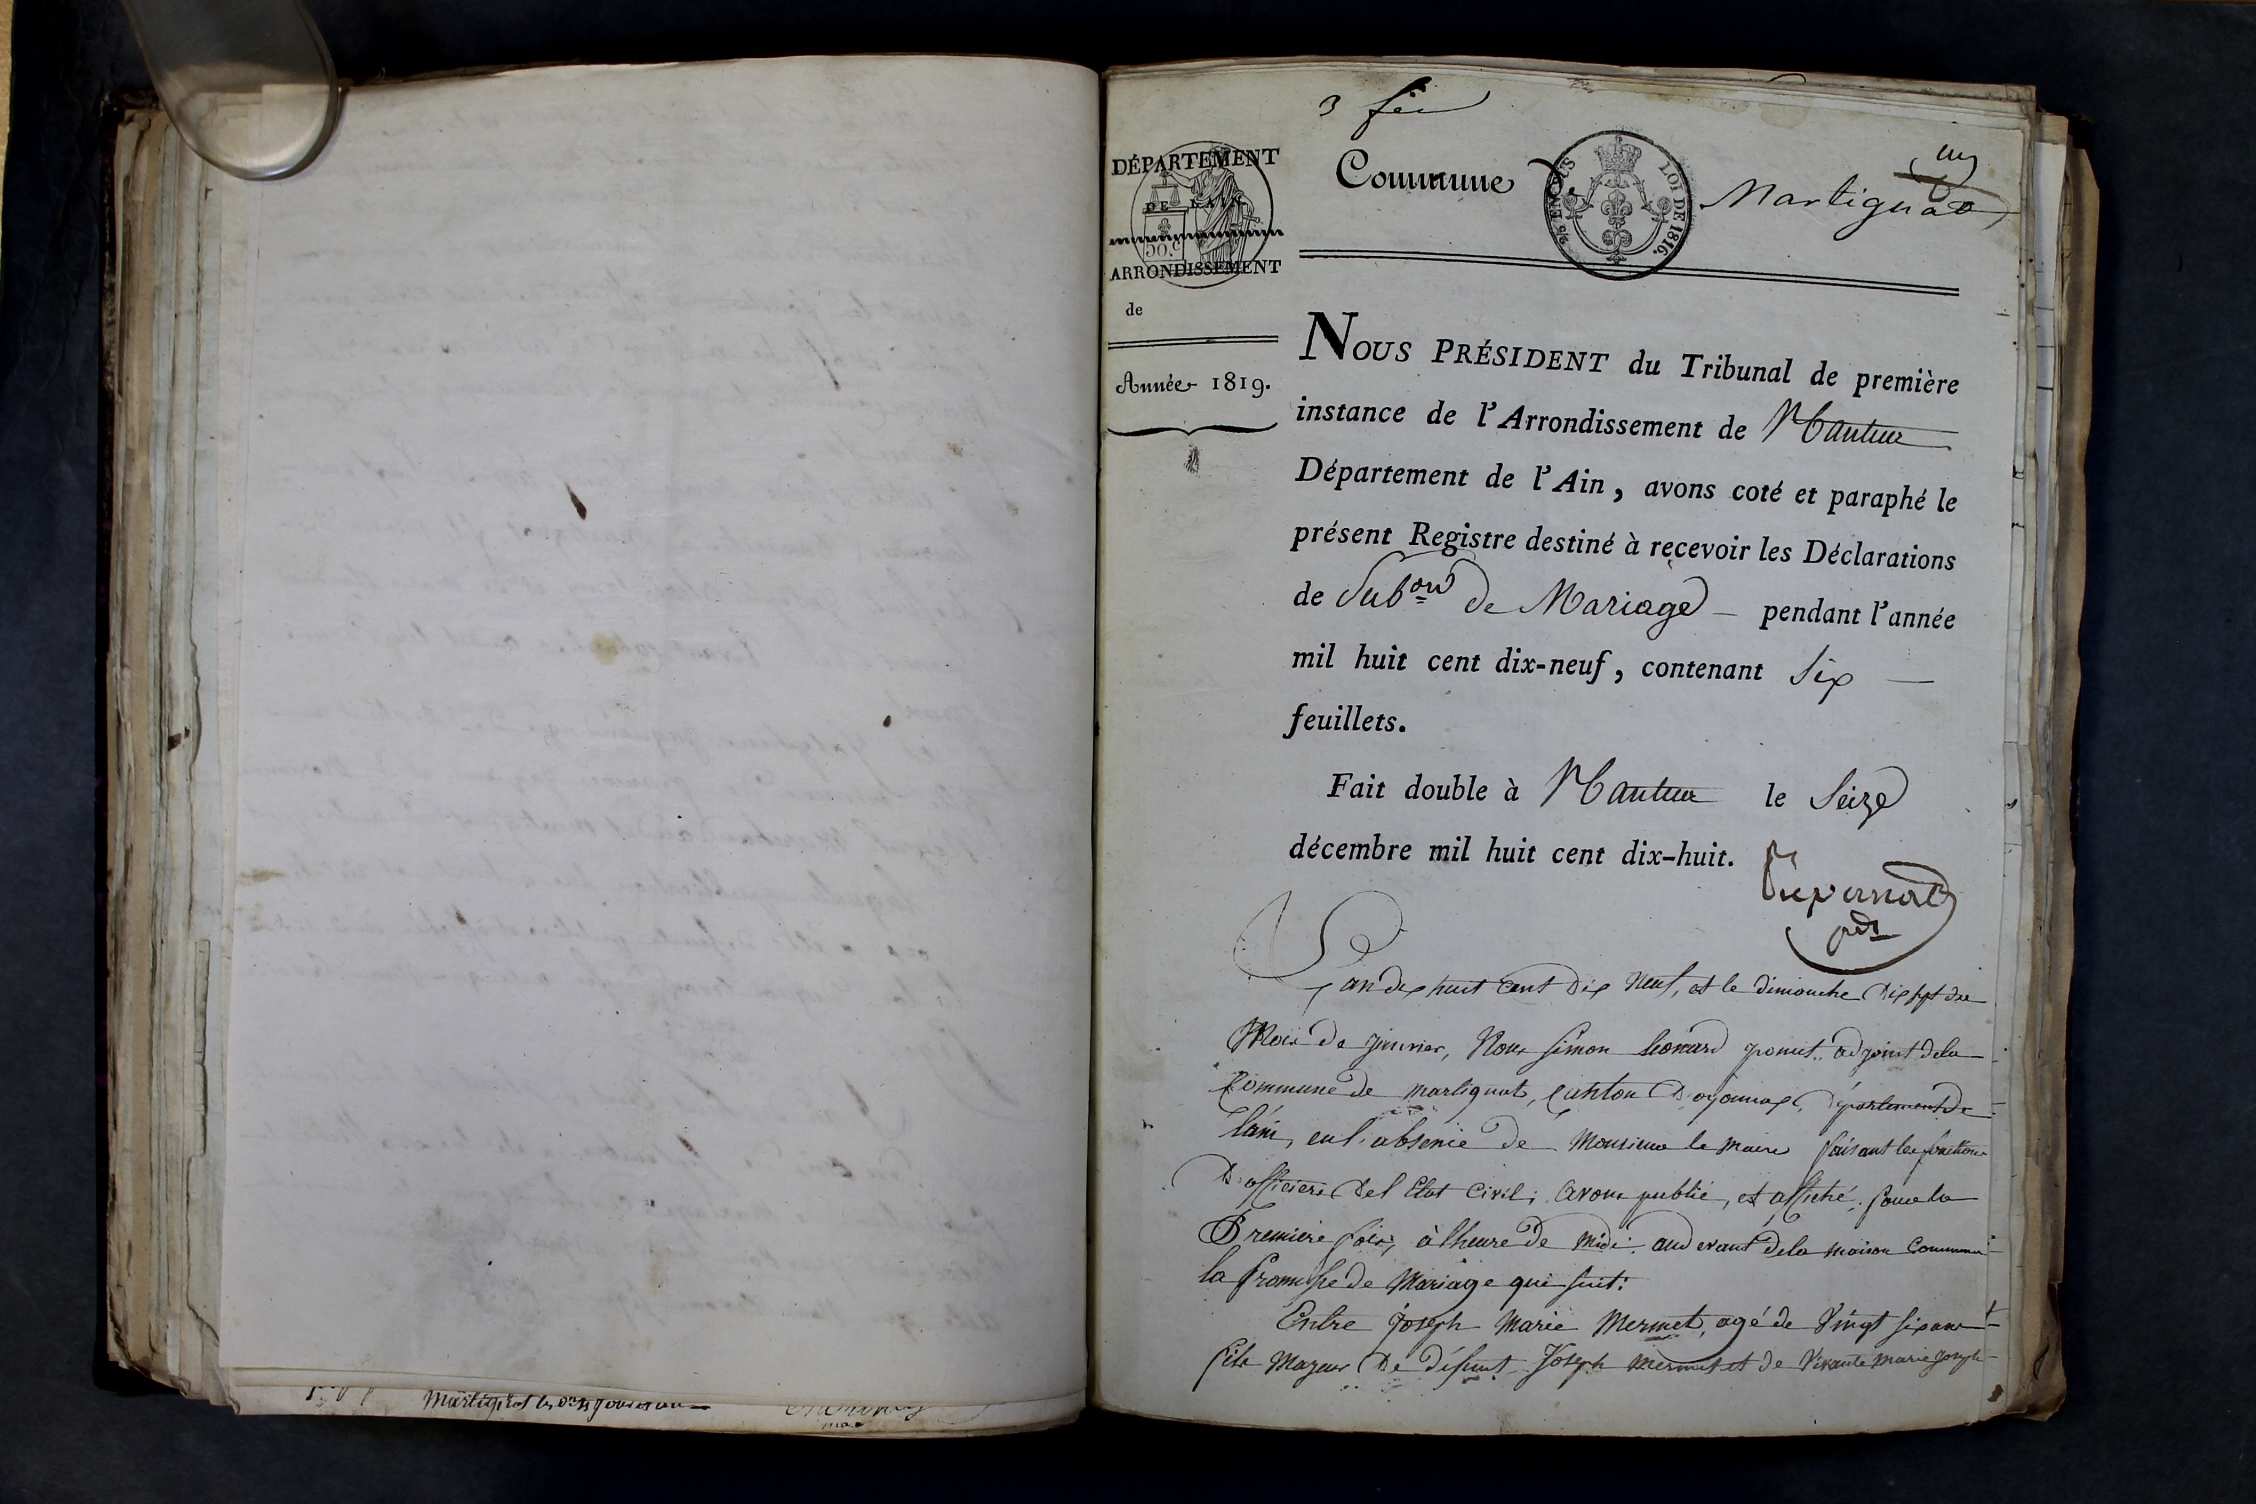 3 fév
DÉPARTEMENT
DE L'AIN
50 C.
ARRONDISSEMENT
de
Année 1819.
Commune de Martignat
EN SUS
LOI DE 1816.
NOUS PRÉSIDENT du Tribunal de première
instance de l'Arrondissement de Nantua
Département de l'Ain, avons coté et paraphé le
présent Registre destiné à recevoir les Déclarations
de Pub.on de Mariage — pendant l'année
mil huit cent dix-neuf, contenant Six —
feuillets.
Fait double à Nantua le Seize
décembre mil huit cent dix-huit.
pdt
L'an dix huit cent dix neuf, et le dimanche dix sept du
Mois de janvier, Nous Simon Léonard adjoint dela
Commune de martignat, canton d'oyonnax, département de
l'ain, en l'absence de Monsieur le maire faisant les fonctions
D'officiers del Etat Civil; avons publié, et affiché, pour la
Premiere fois, à lheure de midi. audevant dela maison Commune
la Promesse de Mariage qui suit:
Entre Joseph Marie Mermet, agé de Vingt six ans
fils Majeur de défunt Joseph mermet et de Vivante marie joseph
Martignat